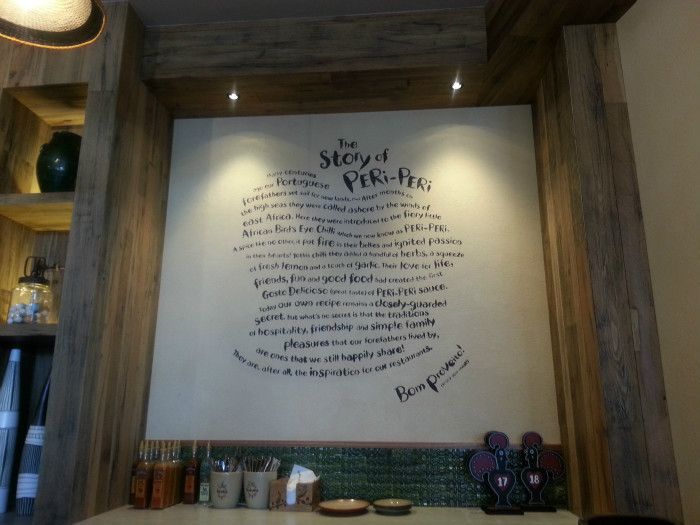 The
Story of
PERi-PERi
Many centuries
ago our Portuguese
forefathers set sail for new lands. After months on
the high seas they were called ashore by the winds of
east Africa. Here they were introduced to the fiery little
African Bird's Eye Chilli which we now know as PERi-PERi.
A spice like no other, it put fire in their bellies and ignited passion
in their hearts! To this chilli they added a handful of herbs, a squeeze
of fresh lemon and a touch of garlic. Their love for life,
friends, fun and good food had created the first
Gosto Delicioso (great taste) of PERi-PERi sauce.
Today our own recipe remains a closely-guarded
secret. But what's no secret is that the traditions
of hospitality, friendship and simple family
pleasures that our forefathers lived by,
are ones that we still happily share!
They are, after all, the inspiration for our restaurants.
Bom Proveito!
17
18